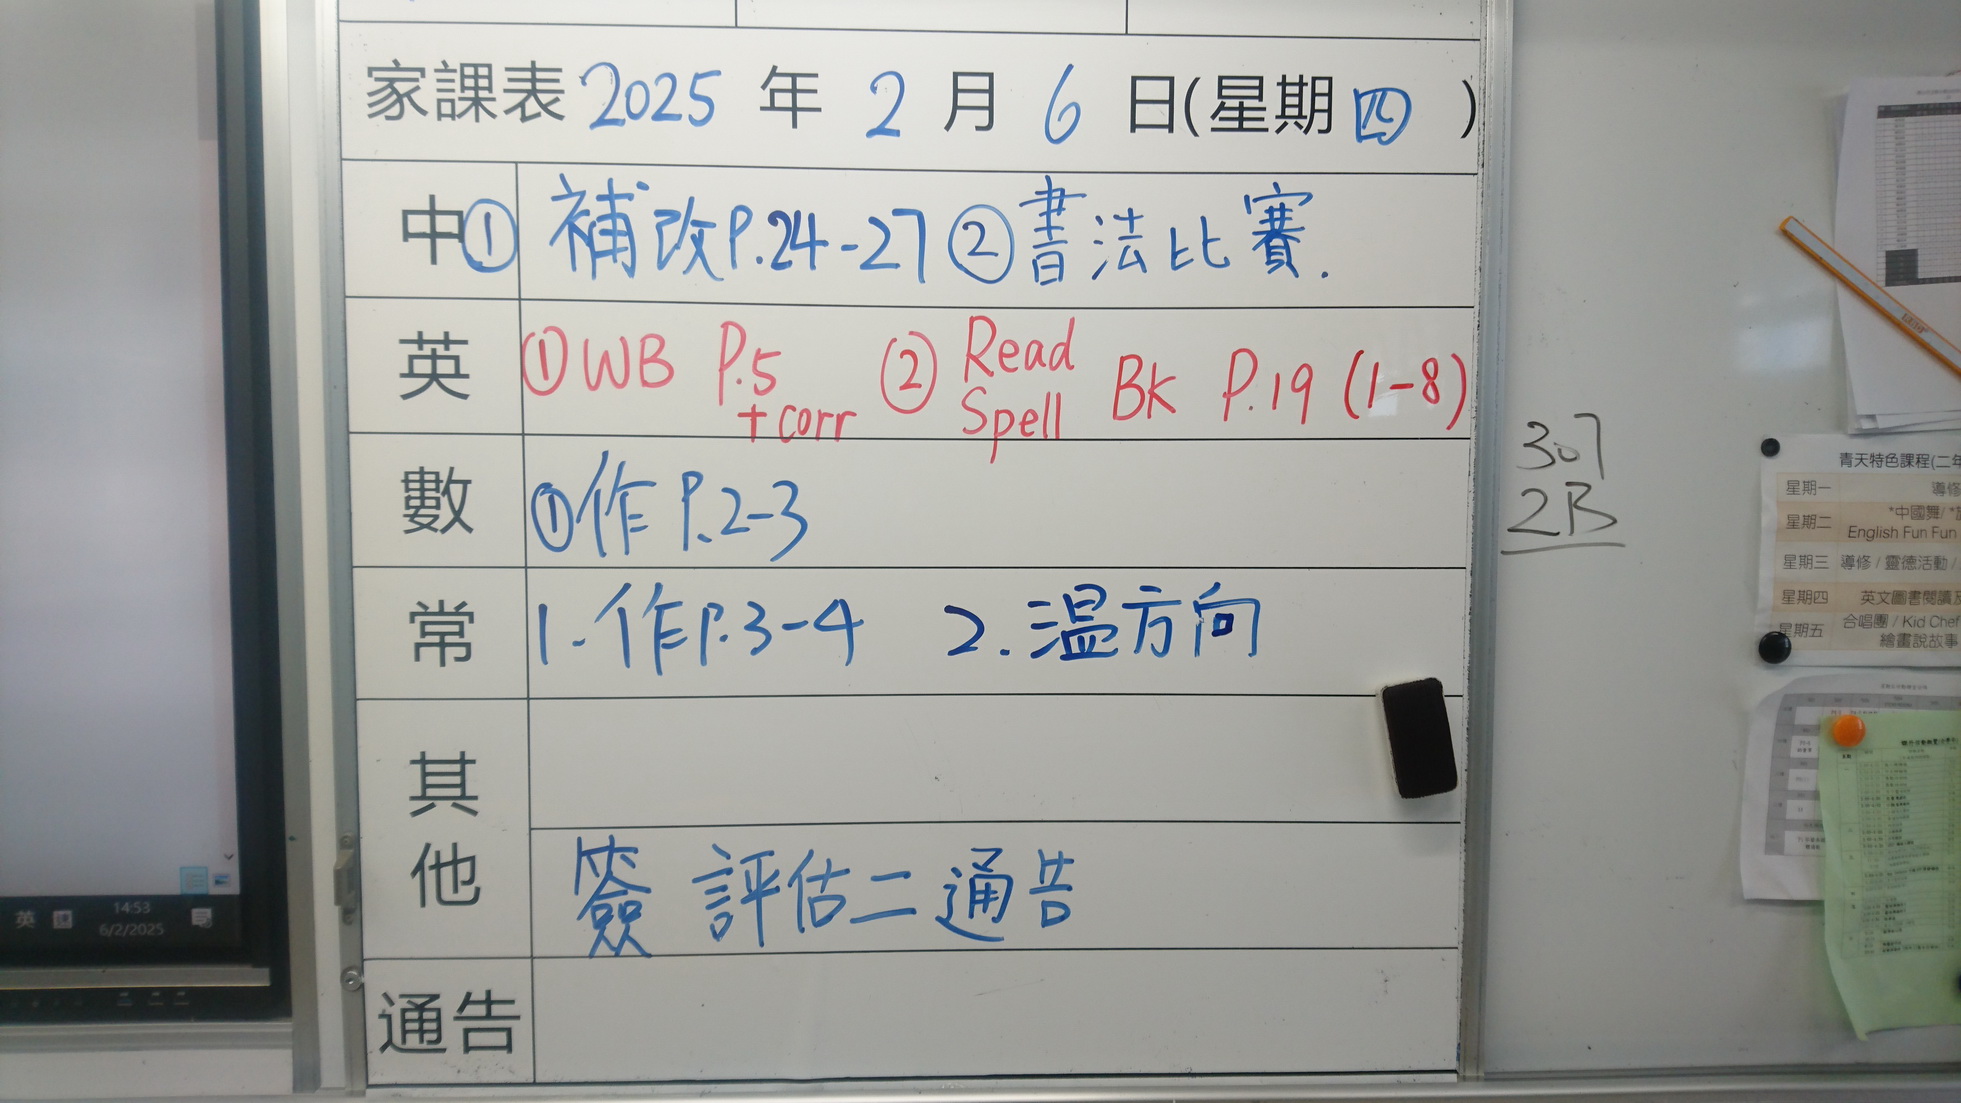 家課表 2025 年 2 月 6 日(星期 四 )
中 ① 補改P.24-27 ② 書法比賽.
英 ① WB P.5 + corr ② Read Spell BK P.19 (1-8)
數 ① 作 P.2-3
常 1. 作P.3-4 2. 温方向
其他
簽 評估二通告
通告
307
2B
青天特色課程(二年
星期一 導修
星期二 *中國舞/ *
English Fun Fun
星期三 導修 / 靈德活動 /
星期四 英文圖書閱讀
星期五 合唱團 / Kid Chef
繪畫說故事
英
14:53
6/2/2025